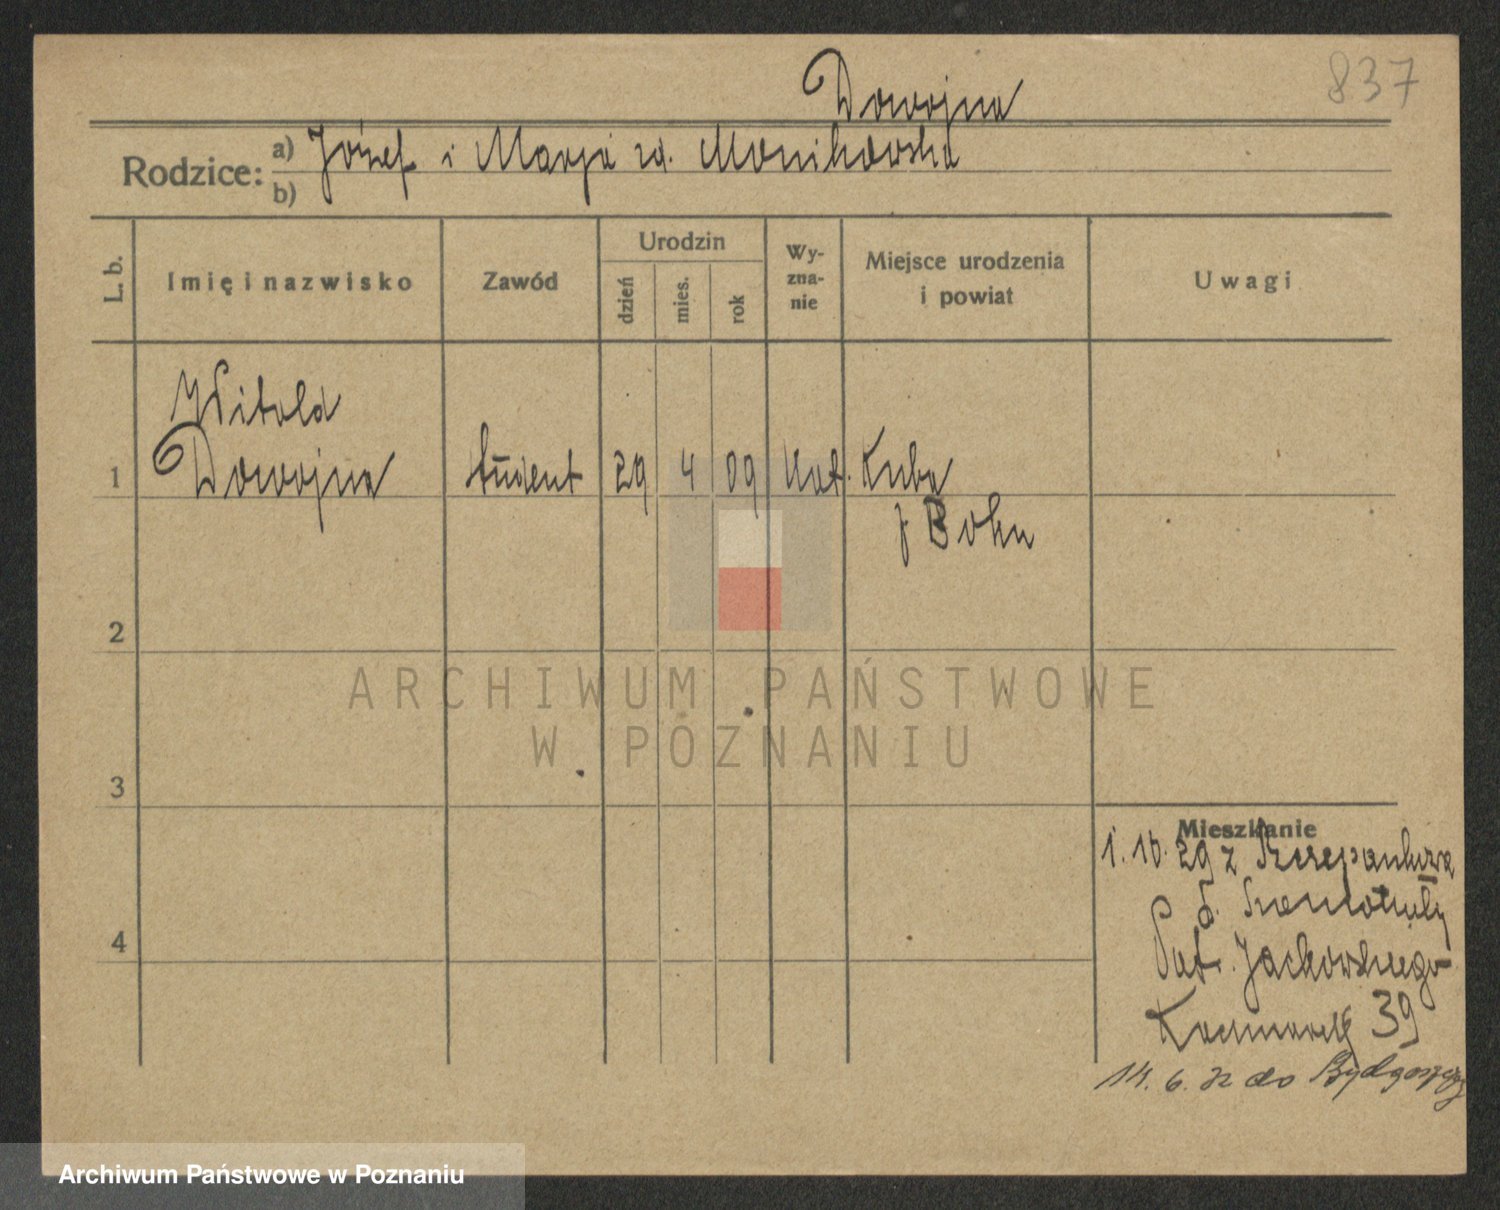 837
Dowojna
Rodzice: a) Józef i Marja zd. Monikowska
b)
L. b.
Imię i nazwisko
Zawód
Urodzin
dzień
mies.
rok
Wy-
zna-
nie
Miejsce urodzenia
i powiat
Uwagi
Witold
1 Dowojna student 29 4 09 kat. Kuba
p. Boku
2
3
4
ARCHIWUM PAŃSTWOWE
W POZNANIU
Mieszkanie
1. 10. 29 z Szczepankowa
p. Szamotuły
Pat. Jackowskiego
Kaczmarek 39
14. 6. 32 do Bydgoszczy
Archiwum Państwowe w Poznaniu